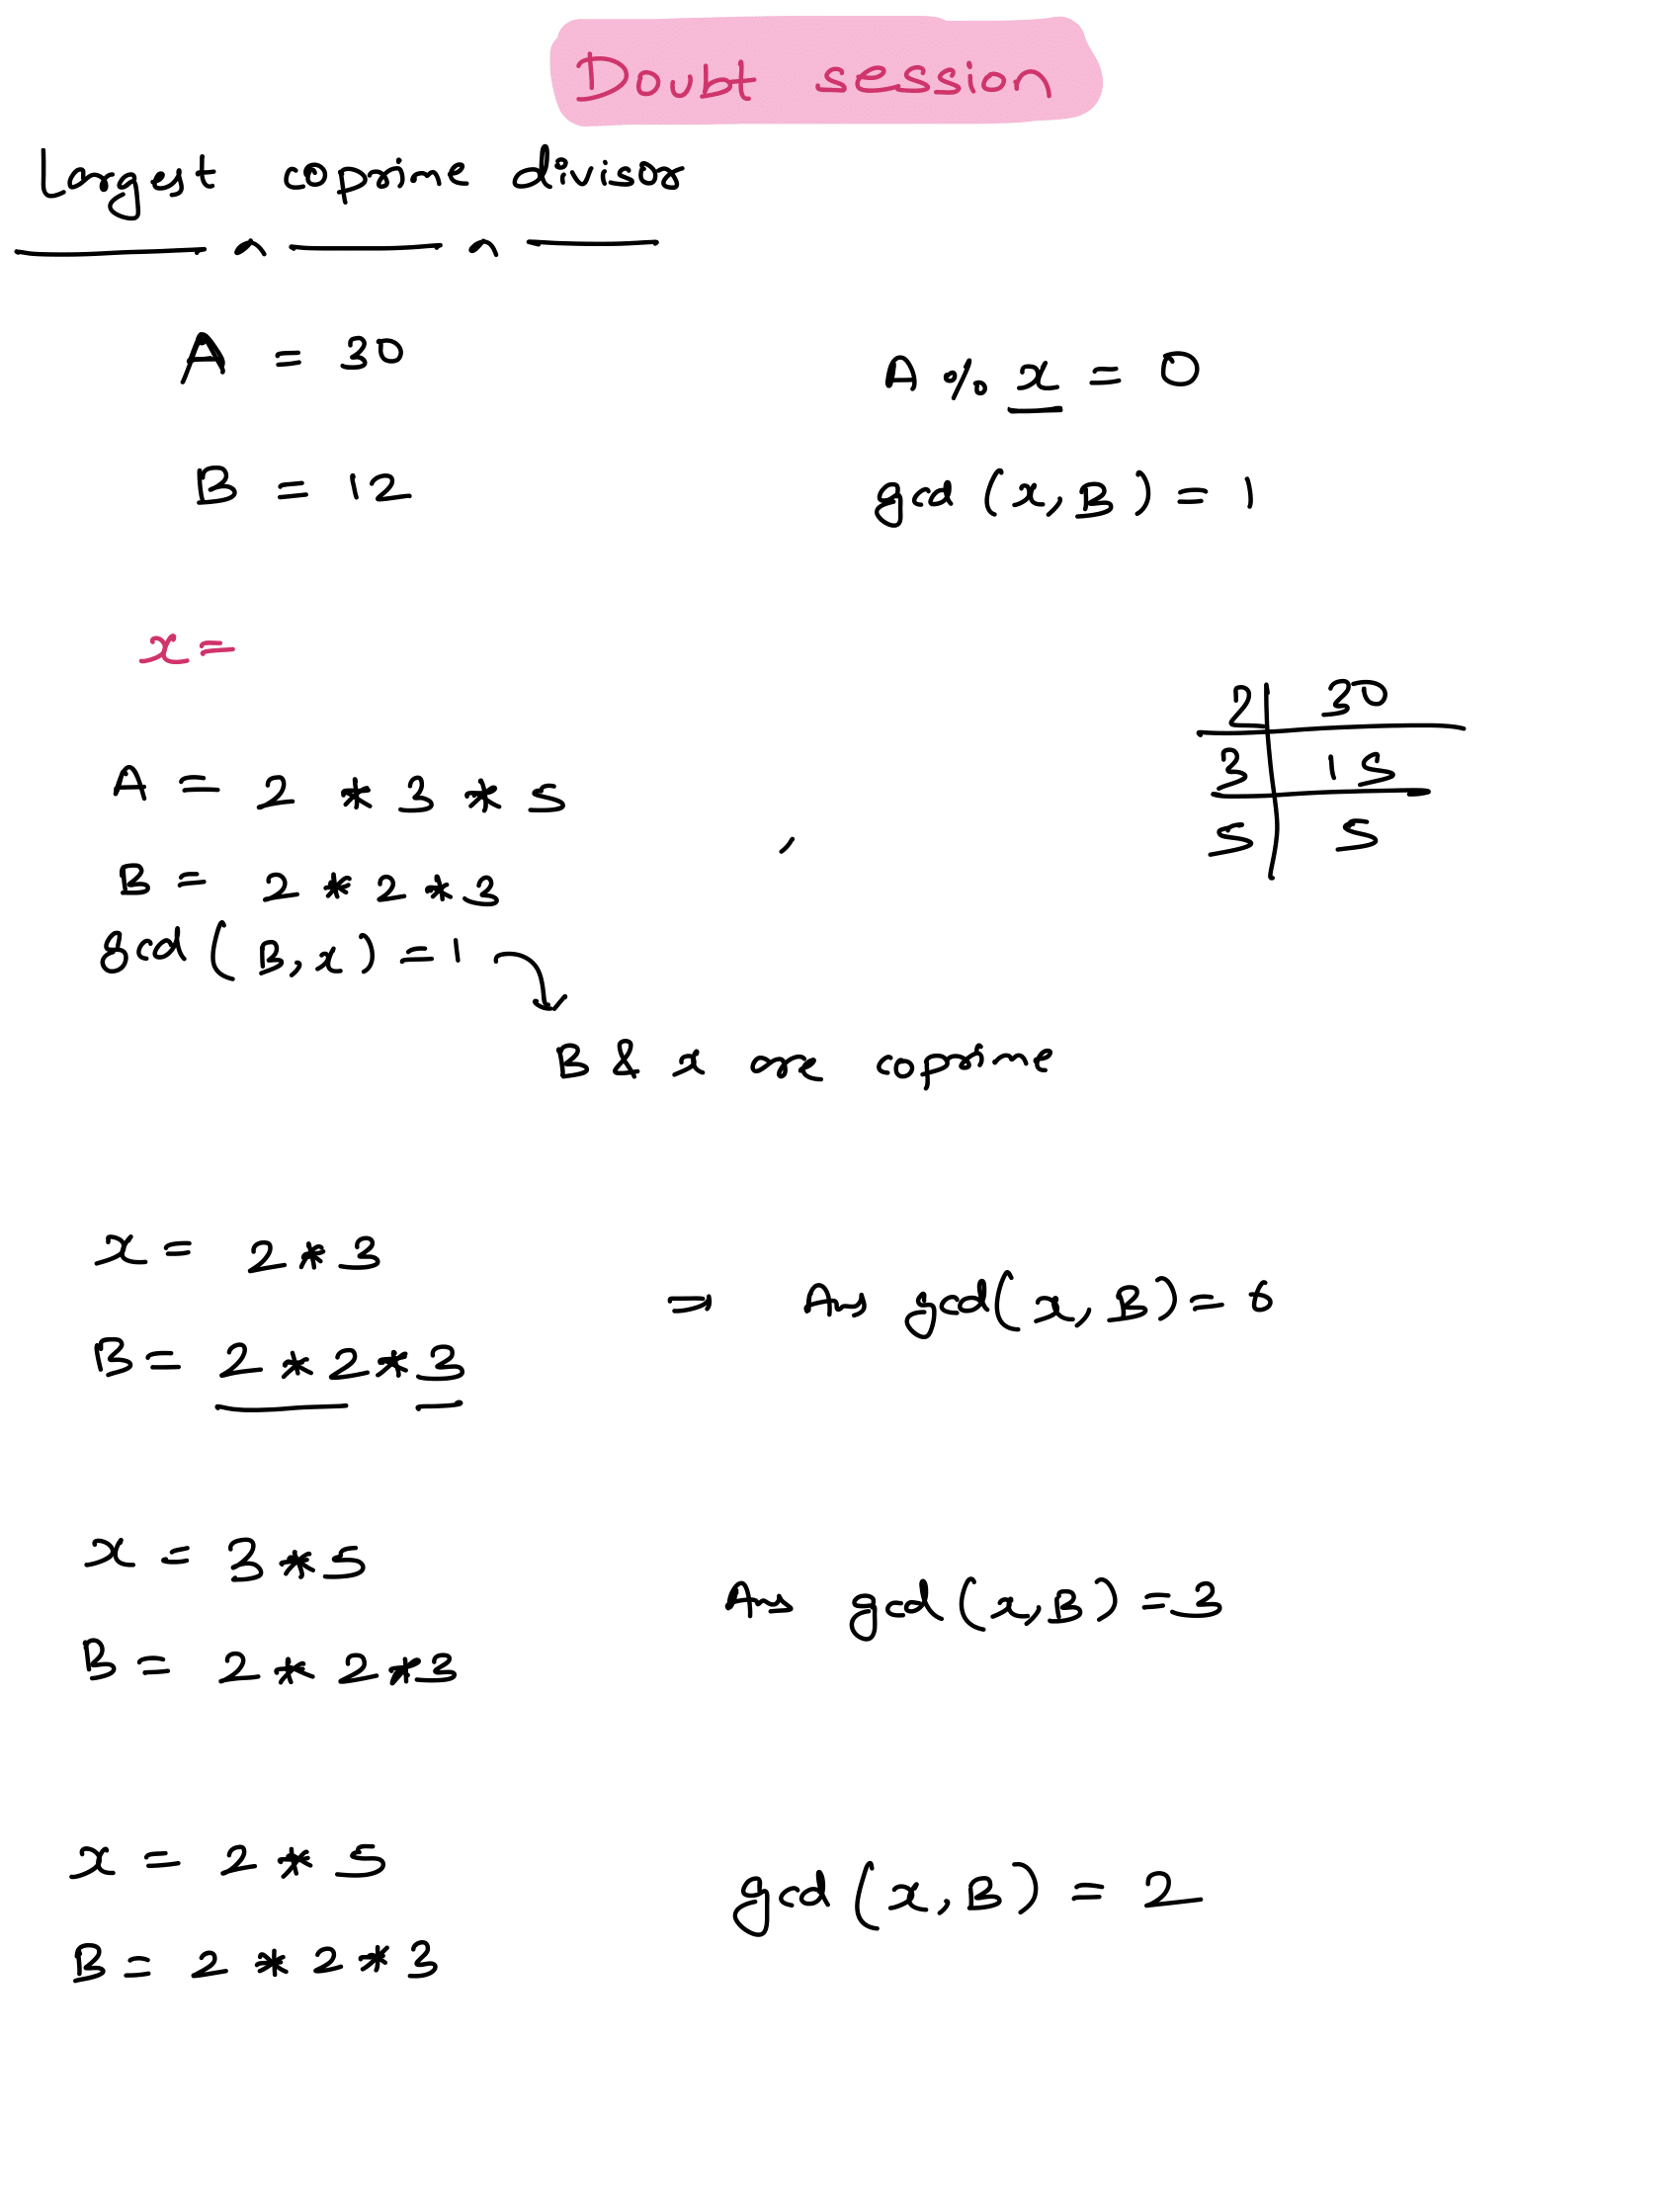 Doubt session
Largest coprime divisor
A = 30
A % x = 0
B = 12
gcd (x, B) = 1
x =
2 | 30
3 | 15
5 | 5
A = 2 * 3 * 5
B = 2 * 2 * 3
gcd (B, x) = 1
B & x are coprime
x = 2 * 3
B = 2 * 2 * 3
⇒ Ans gcd(x, B) = 6
x = 3 * 5
Ans gcd (x, B) = 3
B = 2 * 2 * 3
x = 2 * 5
gcd (x, B) = 2
B = 2 * 2 * 3